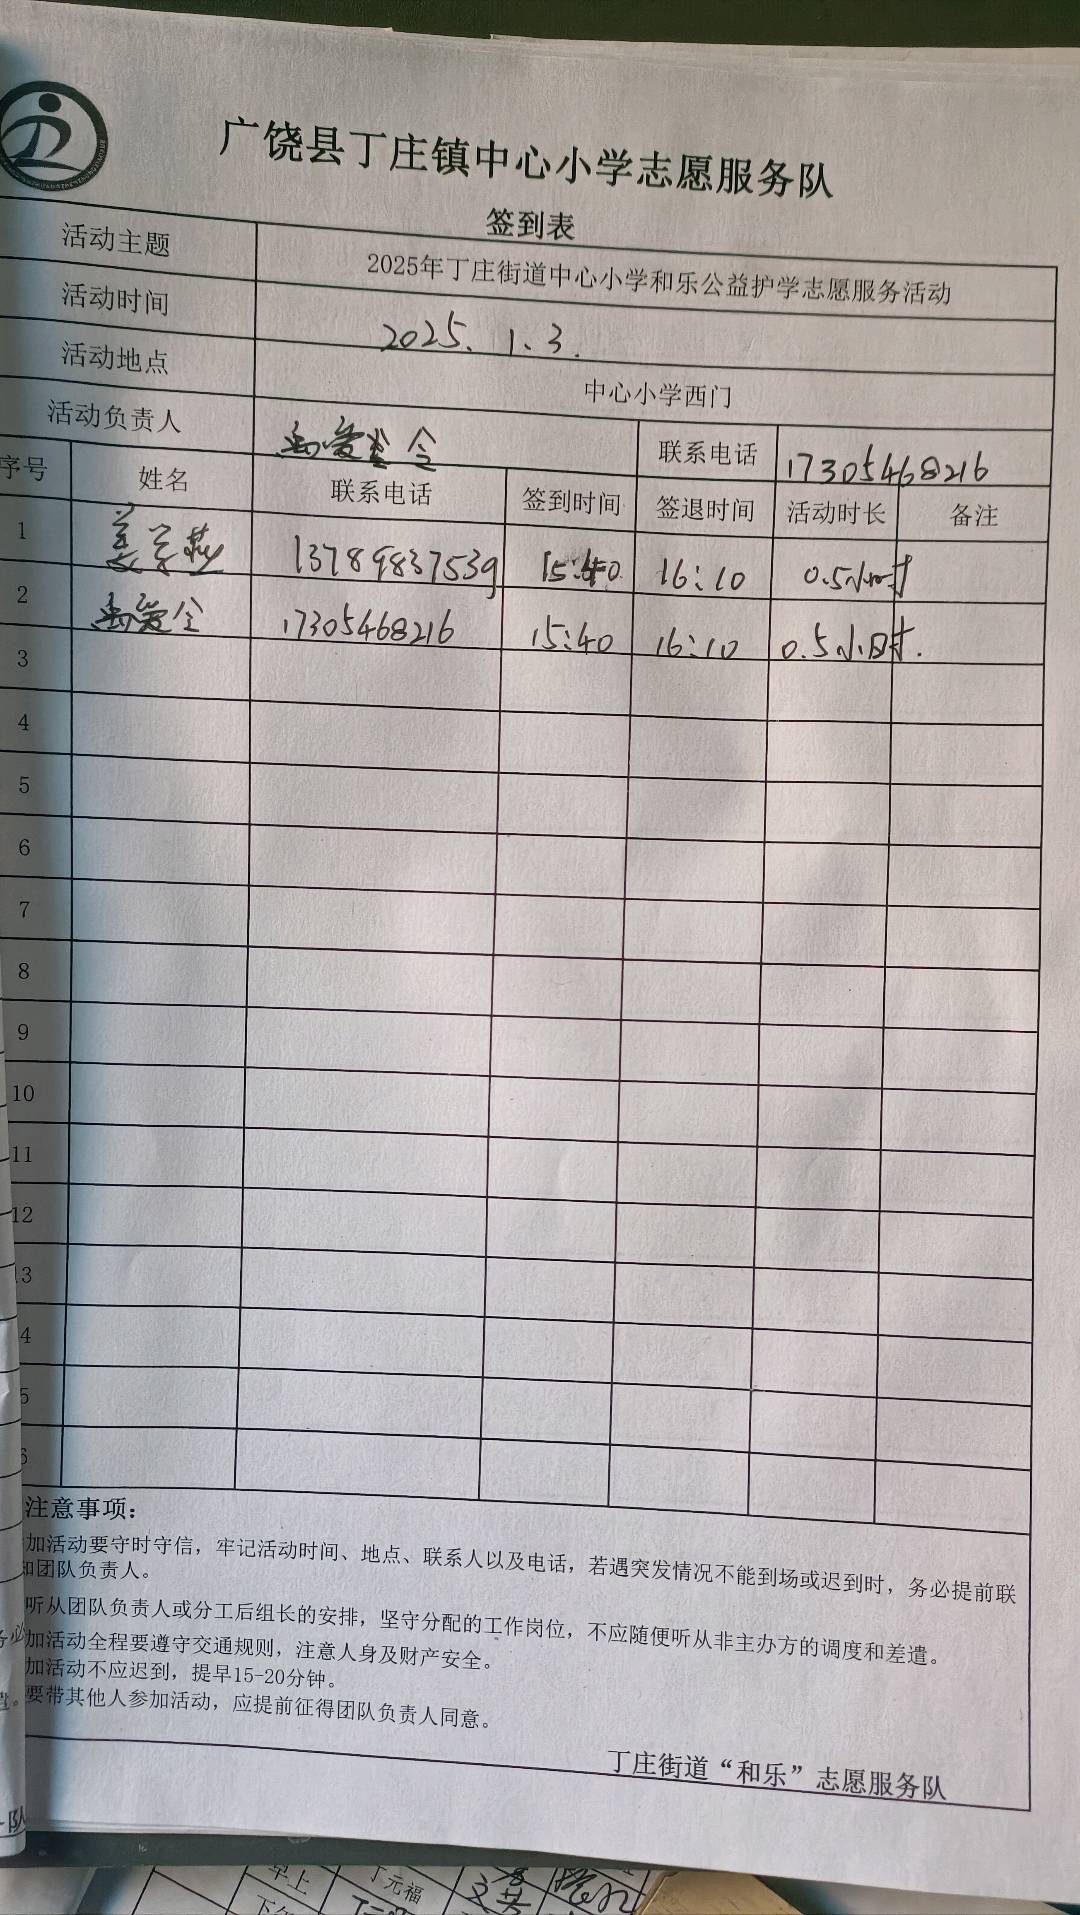 广饶县丁庄镇中心小学志愿服务队
签到表
活动主题 2025年丁庄街道中心小学和乐公益护学志愿服务活动
活动时间 2025.1.3.
活动地点 中心小学西门
活动负责人 联系电话 17305468216
序号 姓名 联系电话 签到时间 签退时间 活动时长 备注
1 13789837539 15:40 16:10 0.5小时
2 17305468216 15:40 16:10 0.5小时.
3
4
5
6
7
8
9
10
11
12
13
4
5
6
注意事项：
加活动要守时守信，牢记活动时间、地点、联系人以及电话，若遇突发情况不能到场或迟到时，务必提前联
知团队负责人。
听从团队负责人或分工后组长的安排，坚守分配的工作岗位，不应随便听从非主办方的调度和差遣。
加活动全程要遵守交通规则，注意人身及财产安全。
加活动不应迟到，提早15-20分钟。
要带其他人参加活动，应提前征得团队负责人同意。
丁庄街道“和乐”志愿服务队
早上 丁元福